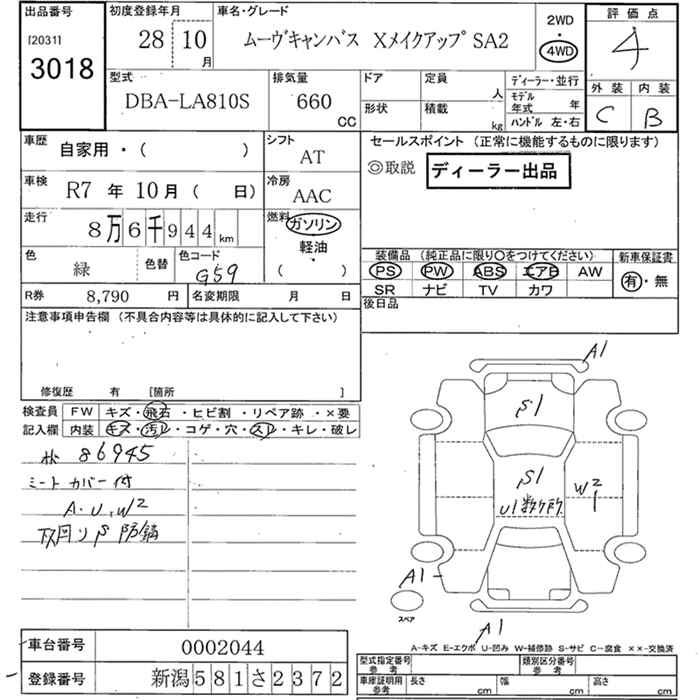 出品番号
[2031]
3018
初度登録年月
28 10
月
車名・グレード
ムーヴキャンバス Xメイクアップ SA2
2WD
・
4WD
評価点
4
外装 内装
C B
型式
DBA-LA810S
排気量
660
CC
ドア
形状
定員
人
積載
kg
ディーラー・並行
モデル
年式 年
ハンドル 左・右
車歴
自家用・( )
シフト
AT
車検
R7 年 10月 ( 日)
冷房
AAC
走行
8万6千944 km
燃料
ガソリン
軽油
( )
色
緑
色替
色コード
G59
R券
8,790 円
名変期限 月 日
セールスポイント (正常に機能するものに限ります)
◎取説
ディーラー出品
装備品 (純正品に限り○をつけてください)
PS PW ABS エアB AW
SR ナビ TV カワ
新車保証書
有・無
後日品
注意事項申告欄 (不具合内容等は具体的に記入して下さい)
修復歴 有 [箇所 ]
検査員
記入欄
FW キズ・飛石・ヒビ割・リペア跡・×要
内装 キズ・汚レ・コゲ・穴・スレ・キレ・破レ
86945
シートカバー付
A・U・W2
下回りS防錆
A1
S1
S1
U1数ヶ所
W2
1
A1
スペア
A1
A-キズ E-エクボ U-凹み W-補修跡 S-サビ C-腐食 ××-交換済
車台番号 0002044
登録番号 新潟581さ2372
型式指定番号
参考
類別区分番号
参考
車庫証明用
参考
長さ cm
幅 cm
高さ cm